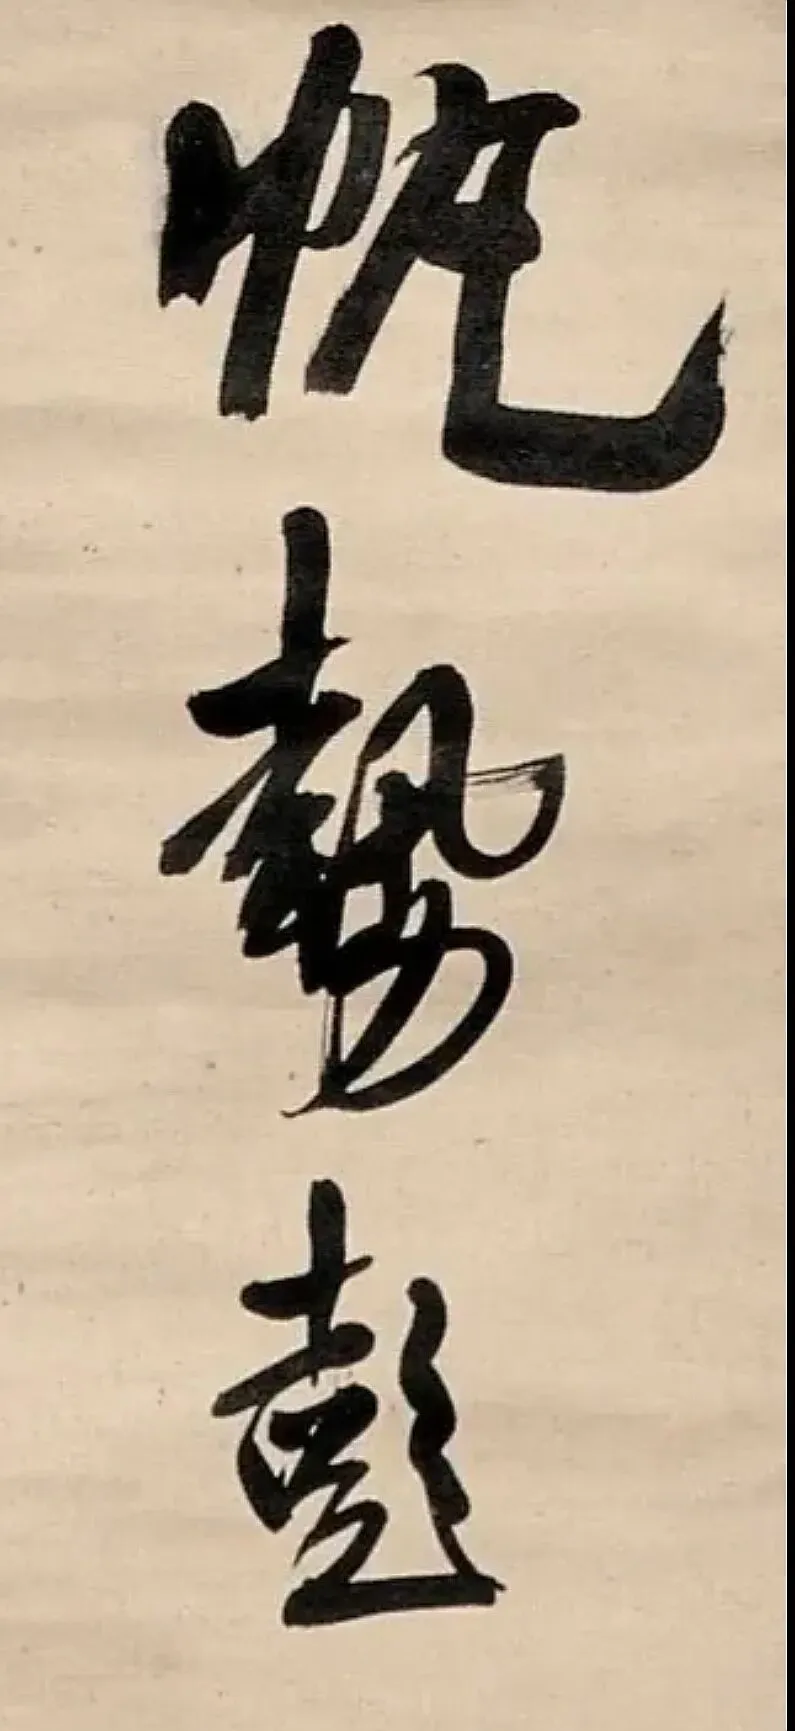 帆勢彭